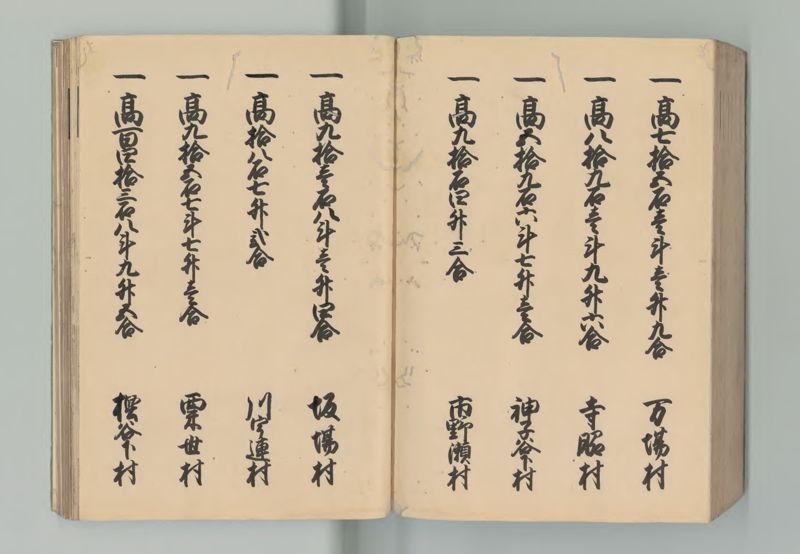 一 高七拾五石壱斗壱升九合 万場村
一 高八拾九石壱斗九升六合 寺昭村
一 高五拾九石六斗七升壱合 神子谷下村
一 高九拾石四升三合 市野瀬村
一 高九拾壱石八斗壱升四合 坂場村
一 高拾八石七升弐合 川宇連村
一 高九拾五石七斗七升壱合 粟世村
一 高百四拾三石八斗九升五合 樫谷下村